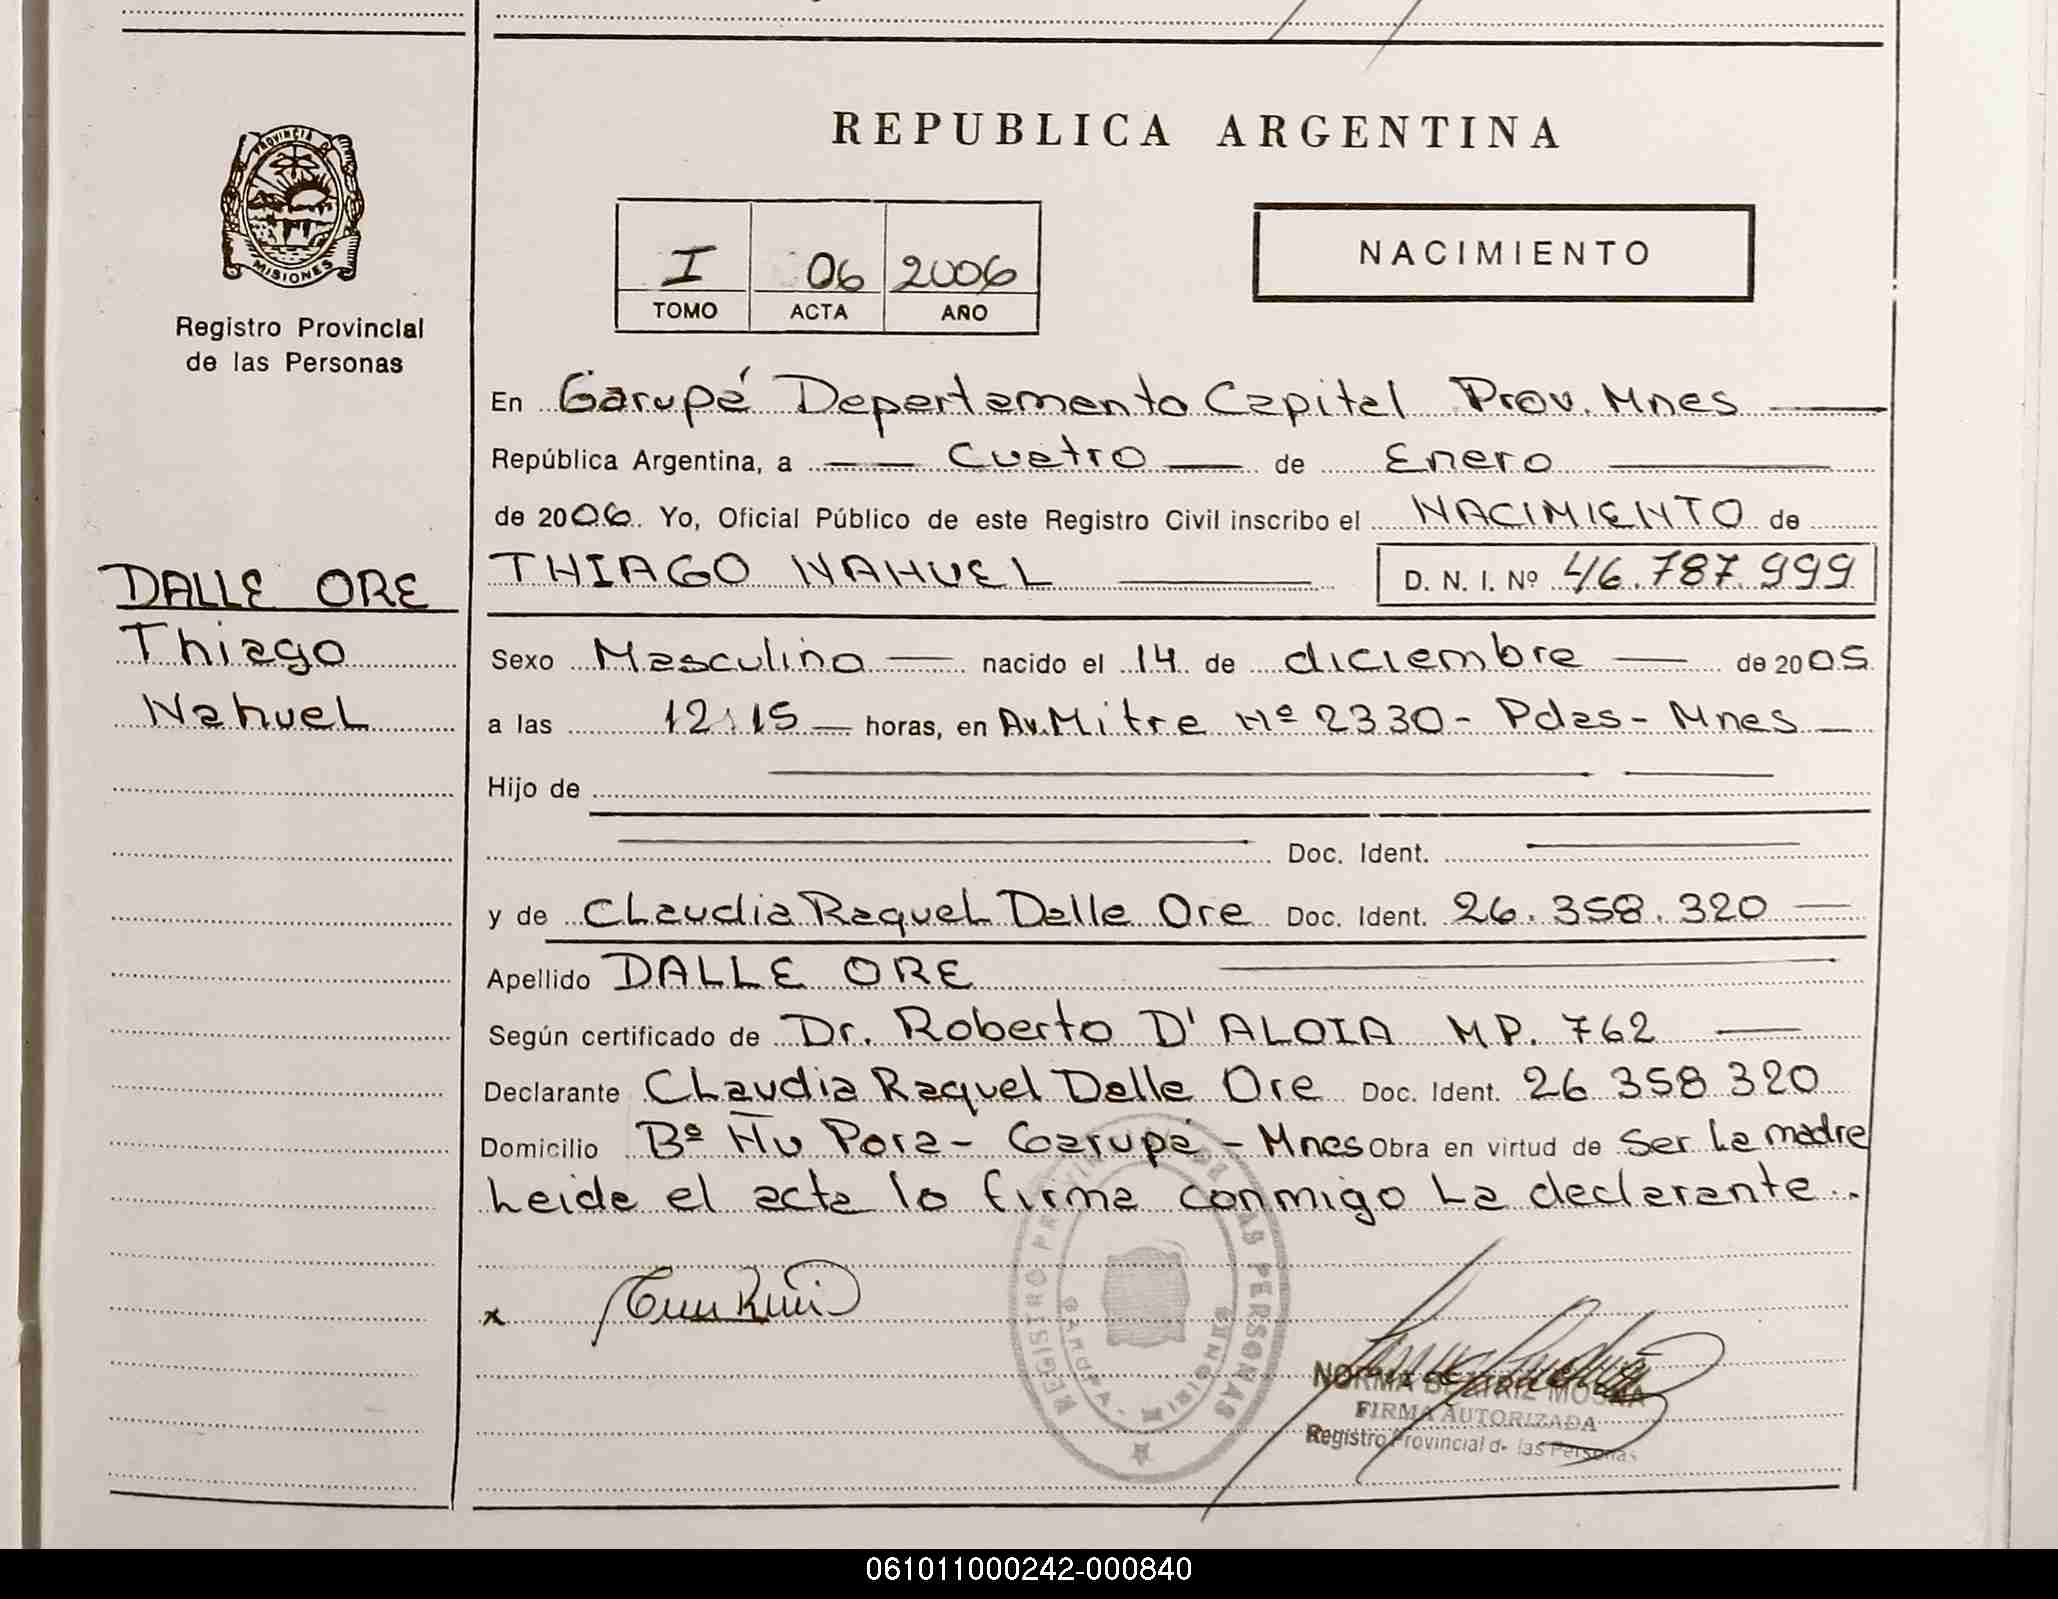 REPUBLICA ARGENTINA
PROVINCIA DE
MISIONES
Registro Provincial
de las Personas
I 06 2006
TOMO ACTA AÑO
NACIMIENTO
En Garupá Departamento Capital Prov. Mnes
República Argentina, a Cuatro de Enero
de 2006 Yo, Oficial Público de este Registro Civil inscribo el NACIMIENTO de
THIAGO NAHUEL D. N. I. Nº 46.787.999
DALLE ORE
Thiago
Nahuel
Sexo Masculino nacido el 14 de diciembre de 2005
a las 12:15 horas, en Av. Mitre Nº 2330 - Pdas - Mnes
Hijo de
Doc. Ident.
y de Claudia Raquel Dalle Ore Doc. Ident. 26.358.320
Apellido DALLE ORE
Según certificado de Dr. Roberto D'ALOIA MP. 762
Declarante Claudia Raquel Dalle Ore Doc. Ident. 26 358 320
Domicilio Bº Ñu Pora - Garupá - Mnes Obra en virtud de Ser La madre
Leida el acta lo firma conmigo La declarante..
x
REGISTRO PROVINCIAL DE LAS PERSONAS
GARUPA
NORMA BEATRIZ
FIRMA AUTORIZADA
Registro Provincial de las Personas
061011000242-000840